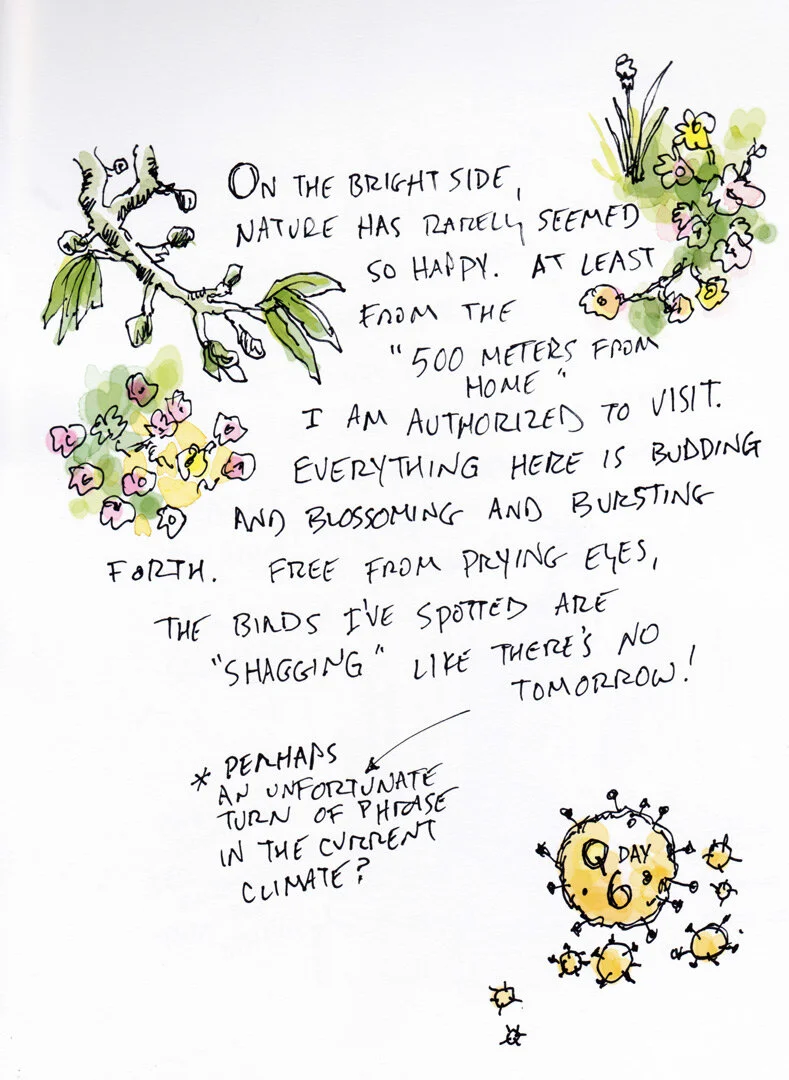 ON THE BRIGHT SIDE,
NATURE HAS RARELY SEEMED
SO HAPPY. AT LEAST
FROM THE
"500 METERS FROM
HOME"
I AM AUTHORIZED TO VISIT.
EVERYTHING HERE IS BUDDING
AND BLOSSOMING AND BURSTING
FORTH. FREE FROM PRYING EYES,
THE BIRDS I'VE SPOTTED ARE
"SHAGGING" LIKE THERE'S NO
TOMORROW!
* PERHAPS
AN UNFORTUNATE
TURN OF PHRASE
IN THE CURRENT
CLIMATE?
Q DAY
6